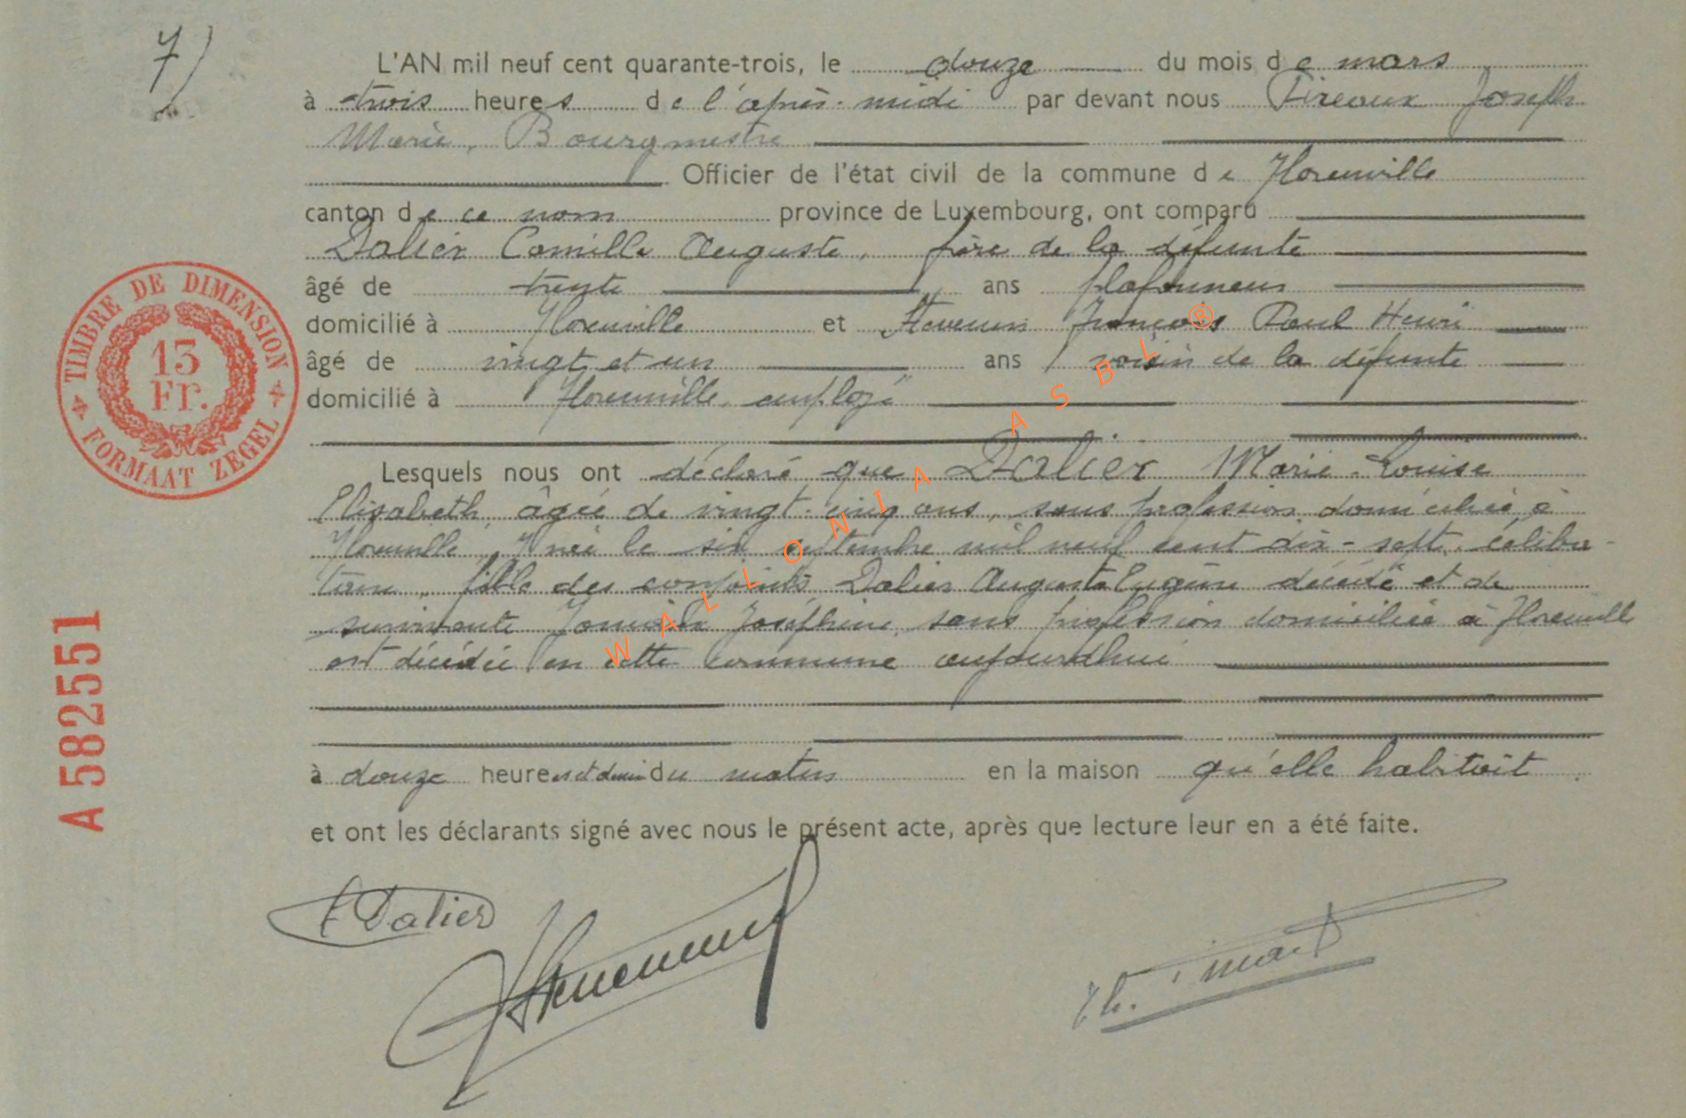 7)
L'AN mil neuf cent quarante-trois, le douze du mois de mars
à trois heures de l'après-midi par devant nous Pireaux Joseph
Marie, Bourgmestre
Officier de l'état civil de la commune de Florenville
canton de ce nom province de Luxembourg, ont comparu
Dalier Camille Auguste, frère de la défunte
âgé de trente ans plafonneur
domicilié à Florenville et François Paul Henri
âgé de vingt et un ans voisin de la défunte
domicilié à Florenville, employé
Lesquels nous ont déclaré que Dalier Marie-Louise
Elisabeth, âgée de vingt-cinq ans, sans profession domiciliée à
Florenville, née le six septembre mil neuf cent dix-sept, céliba-
taire, fille des conjoints Dalier Auguste Eugène décédé et de
survivante Joséphine, sans profession domiciliée à Florenville
est décédée en cette commune aujourd'hui
à douze heures et demi du matin en la maison qu'elle habitait
et ont les déclarants signé avec nous le présent acte, après que lecture leur en a été faite.
Dalier
TIMBRE DE DIMENSION
13
Fr.
FORMAAT ZEGEL
A 582551
WALLONIA ASBL ®